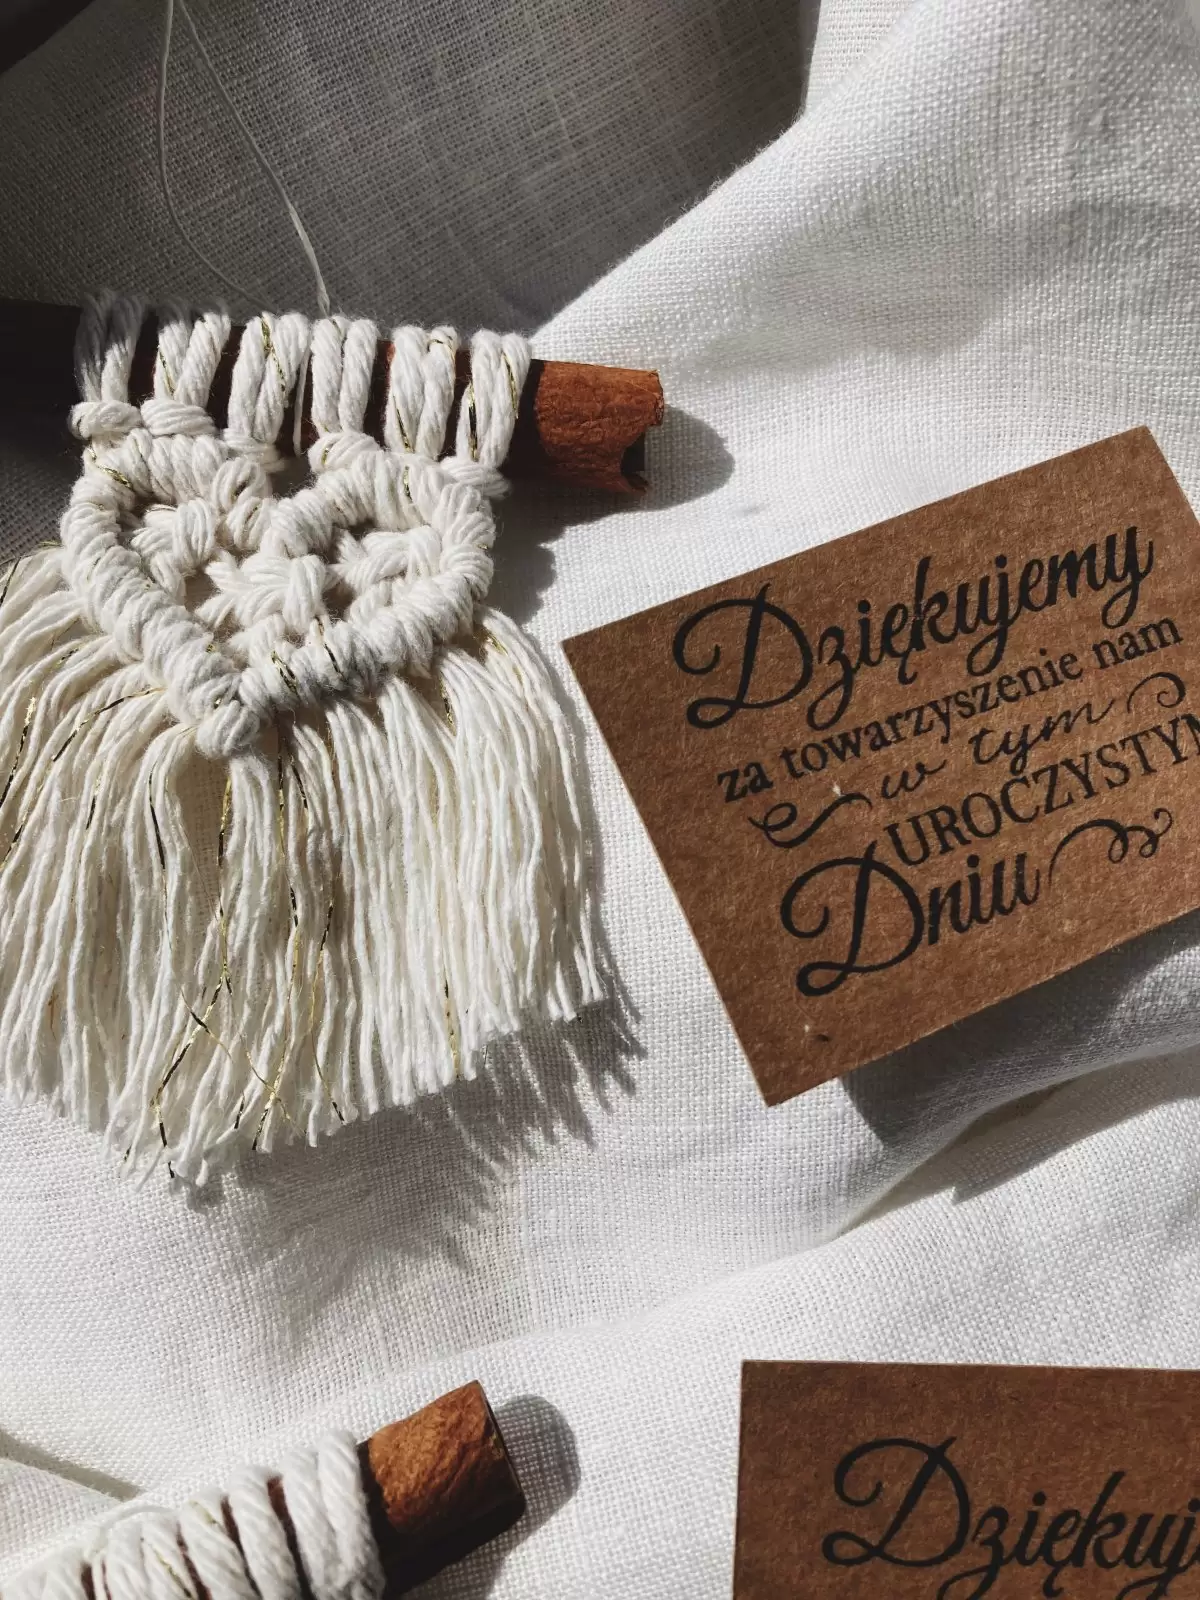 Dziękujemy
za towarzyszenie nam
w tym
UROCZYSTYM
Dniu
Dziękuj